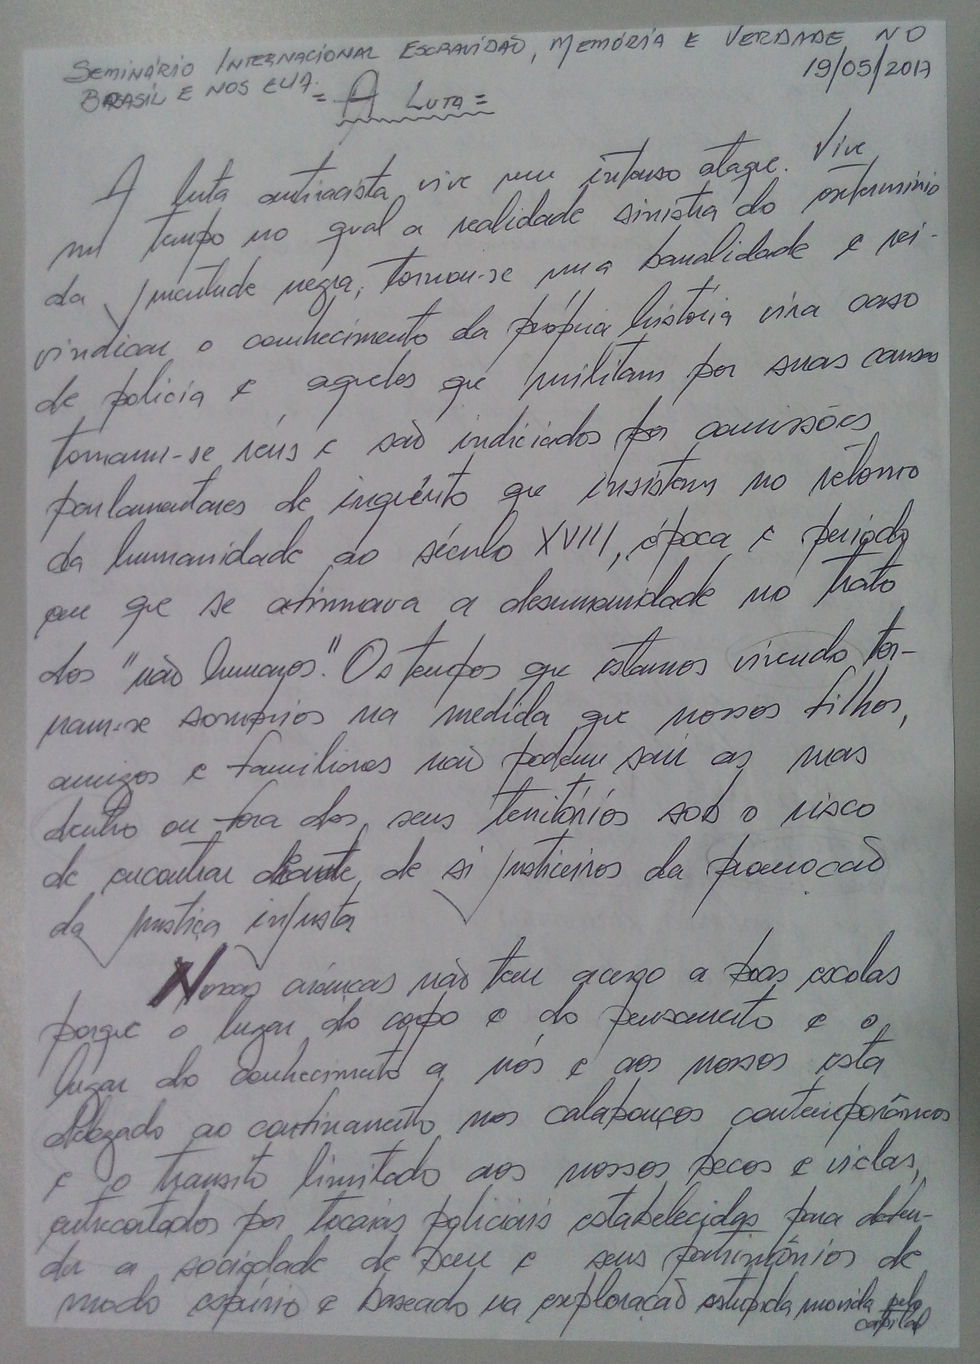 SEMINÁRIO INTERNACIONAL ESCRAVIDÃO, MEMÓRIA E VERDADE NO
BRASIL E NOS EUA. 19/05/2017
= A LUTA =
A luta antiracista vive um intenso ataque. Vive
um tempo no qual a realidade sinistra do extermínio
da juventude negra, tornou-se uma banalidade e rei-
vindicar o conhecimento da própria história vira caso
de polícia e aqueles que militam por suas causas
tornam-se réus e são indiciados por comissões
parlamentares de inquérito que insistem no retorno
da humanidade ao século XVIII, época e período
em que se afirmava a desumanidade no trato
dos "não humanos". Os tempos que estamos vivendo tor-
nam-se sombrios na medida que nossos filhos,
amigos e familiares não podem sair as ruas
dentro ou fora dos seus territórios sob o risco
de encontrar diante de si justiceiros da promoção
da justiça injusta
Nossas crianças não tem acesso a boas escolas
porque o lugar do corpo e do pensamento e o
lugar do conhecimento a nós e aos nossos esta
delegado ao confinamento nos calabouços contemporâneos
e o transito limitado aos nossos becos e vielas,
entrecortados por tocaias policiais estabelecidas para defen-
der a sociedade de bem e seus patrimônios de
modo espúrio e baseado na exploração estupida movida pelo
capital